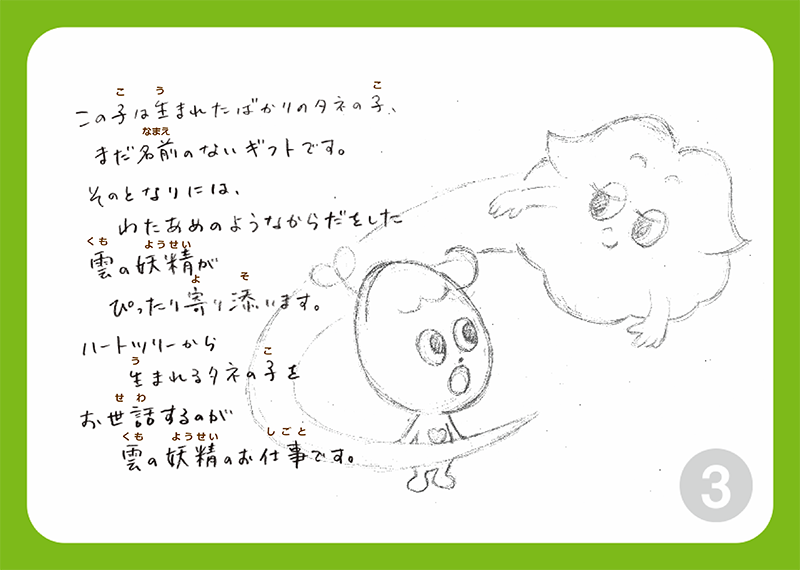 この子は生まれたばかりのタネの子、
まだ名前のないギフトです。
そのとなりには、
わたあめのようなからだをした
雲の妖精が
ぴったり寄り添います。
ハートツリーから
生まれるタネの子を
お世話するのが
雲の妖精のお仕事です。
3